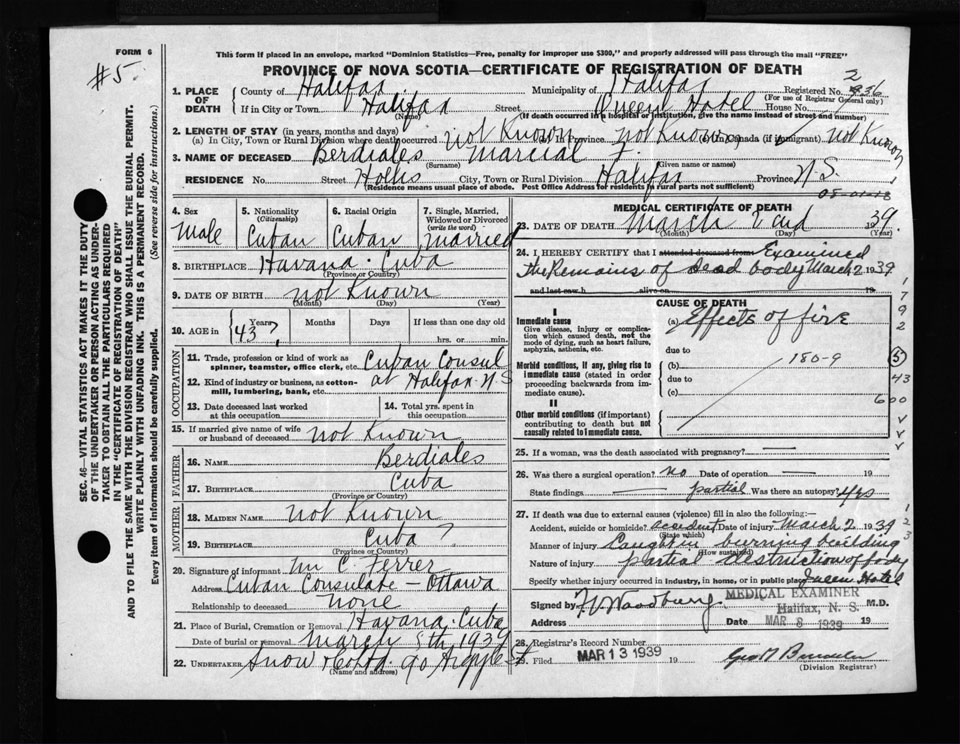 FORM 6
#5.
This form if placed in an envelope, marked "Dominion Statistics—Free, penalty for improper use $300," and properly addressed will pass through the mail "FREE"
PROVINCE OF NOVA SCOTIA—CERTIFICATE OF REGISTRATION OF DEATH
SEC. 46—VITAL STATISTICS ACT MAKES IT THE DUTY
OF THE UNDERTAKER OR PERSON ACTING AS UNDER-
TAKER TO OBTAIN ALL THE PARTICULARS REQUIRED
IN THE "CERTIFICATE OF REGISTRATION OF DEATH"
AND TO FILE THE SAME WITH THE DIVISION REGISTRAR WHO SHALL ISSUE THE BURIAL PERMIT.
WRITE PLAINLY WITH UNFADING INK. THIS IS A PERMANENT RECORD.
Every item of information should be carefully supplied. (See reverse side for instructions.)
1. PLACE OF DEATH
County of Halifax Municipality of Halifax Registered No. 2 836
(For use of Registrar General only)
If in City or Town Halifax Street Queen Hotel House No.
(Name) (If death occurred in a hospital or institution, give the name instead of street and number)
2. LENGTH OF STAY (in years, months and days)
(a) In City, Town or Rural Division where death occurred Not Known (b) in Province Not Known (c) in Canada (if immigrant) Not Known
3. NAME OF DECEASED Berdiales Marcial J.
(Surname) (Given name or names)
RESIDENCE No. Street Hollis City, Town or Rural Division Halifax Province N.S.
(Residence means usual place of abode. Post Office Address for residents in rural parts not sufficient)
08-01-18
4. Sex Male
5. Nationality (Citizenship) Cuban
6. Racial Origin Cuban
7. Single, Married, Widowed or Divorced (write the word) Married
8. BIRTHPLACE Havana - Cuba
(Province or Country)
9. DATE OF BIRTH not Known
(Month) (Day) (Year)
10. AGE in Years 43? Months Days If less than one day old
hrs. or min.
OCCUPATION
11. Trade, profession or kind of work as
spinner, teamster, office clerk, etc. Cuban Consul
12. Kind of industry or business, as cotton-
mill, lumbering, bank, etc. at Halifax N S
13. Date deceased last worked
at this occupation
14. Total yrs. spent in
this occupation.
15. If married give name of wife
or husband of deceased Not Known
FATHER
16. NAME Berdiales
17. BIRTHPLACE Cuba
(Province or Country)
MOTHER
18. MAIDEN NAME Not Known
19. BIRTHPLACE Cuba ?
(Province or Country)
20. Signature of informant Mr C. Ferrer
Address Cuban Consulate - Ottawa
Relationship to deceased None
21. Place of Burial, Cremation or Removal Havana - Cuba
Date of burial or removal March 8th 1939
22. UNDERTAKER Snow & Co Ltd. 90 Argyle St
(Name and address)
MEDICAL CERTIFICATE OF DEATH
23. DATE OF DEATH March 2nd 39.
(Month) (Day)
24. I HEREBY CERTIFY that I attended deceased from Examined
the Remains of dead body March 2 1939
and last saw h alive on 19
CAUSE OF DEATH
I
Immediate cause
Give disease, injury or complica-
tion which caused death, not the
mode of dying, such as heart failure,
asphyxia, asthenia, etc.
(a) Effects of fire
due to
Morbid conditions, if any, giving rise to
immediate cause (stated in order
proceeding backwards from im-
mediate cause).
(b) 180-9
due to
(c)
II
Other morbid conditions (if important)
contributing to death but not
causally related to immediate cause.
1792
(5)
43
600
V
V
V
25. If a woman, was the death associated with pregnancy? —
26. Was there a surgical operation? No Date of operation — 19
State findings — partial Was there an autopsy? yes
27. If death was due to external causes (violence) fill in also the following:—
Accident, suicide or homicide? accident Date of injury March 2 1939
(State which)
Manner of injury Caught in burning building
(How sustained)
Nature of injury partial destruction of body
Specify whether injury occurred in industry, in home, or in public place Queen Hotel
123
Signed by F.V. Woodbury M.D.
MEDICAL EXAMINER
Halifax, N. S.
Address Date MAR 8 1939 19
28. Registrar's Record Number
29. Filed MAR 13 1939 19
(Division Registrar)